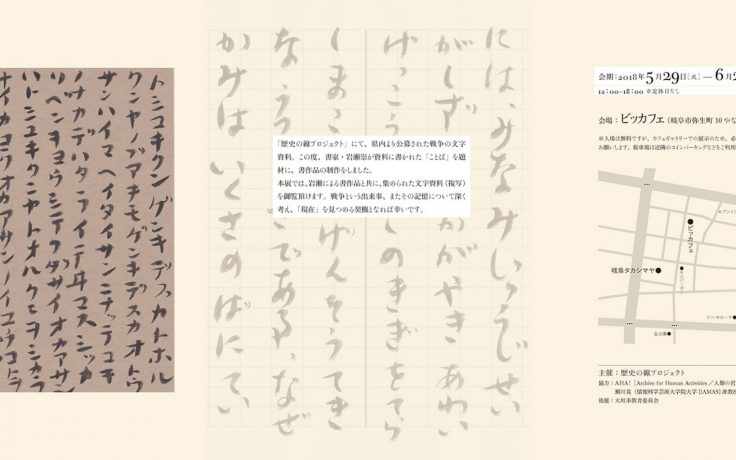 トシユキクンゲンキデスカトホル
クンヤノブアキモゲンキデスカオト
サンハイマヘイタイサンニナッテコキ
ノナカデハタライテヰマスシッカ
シテクダサイオカアサン
ハトシユキクンヤトオルク
オカアサンノイユウコト
には、みなみじゅうじせい
がしず かがやき あわい
げっこう しのきぎをてら
しまこ げんそうてき
な、うつ こである、なぜ
かみは いくさのばにてい
「歴史の線プロジェクト」にて、県内より公募された戦争の文字
資料。この度、書家・岩瀬崇が資料に書かれた「ことば」を題
材に、書作品の制作をしました。
本展では、岩瀬による書作品と共に、集められた文字資料(複写)
を御覧頂けます。戦争という出来事、またその記憶について深く
考え、「現在」を見つめる契機となれば幸いです。
会期:2018年5月29日[火] — 6月2
12:00–18:00 ※定休日なし
会場:ビッカフェ(岐阜市弥生町10やな
※入場は無料ですが、カフェギャラリーでの展示のため、必
お願いします。駐車場は近隣のコインパーキングなどをご利用
セブンイレ
ビッカフェ
岐阜タカシマヤ
ドン・キホーテ
金公園
主催:歴史の線プロジェクト
協力:AHA! [Archive for Human Activities/人類の営
瀬川晃(情報科学芸術大学院大学[IAMAS]准教授
後援:大垣市教育委員会